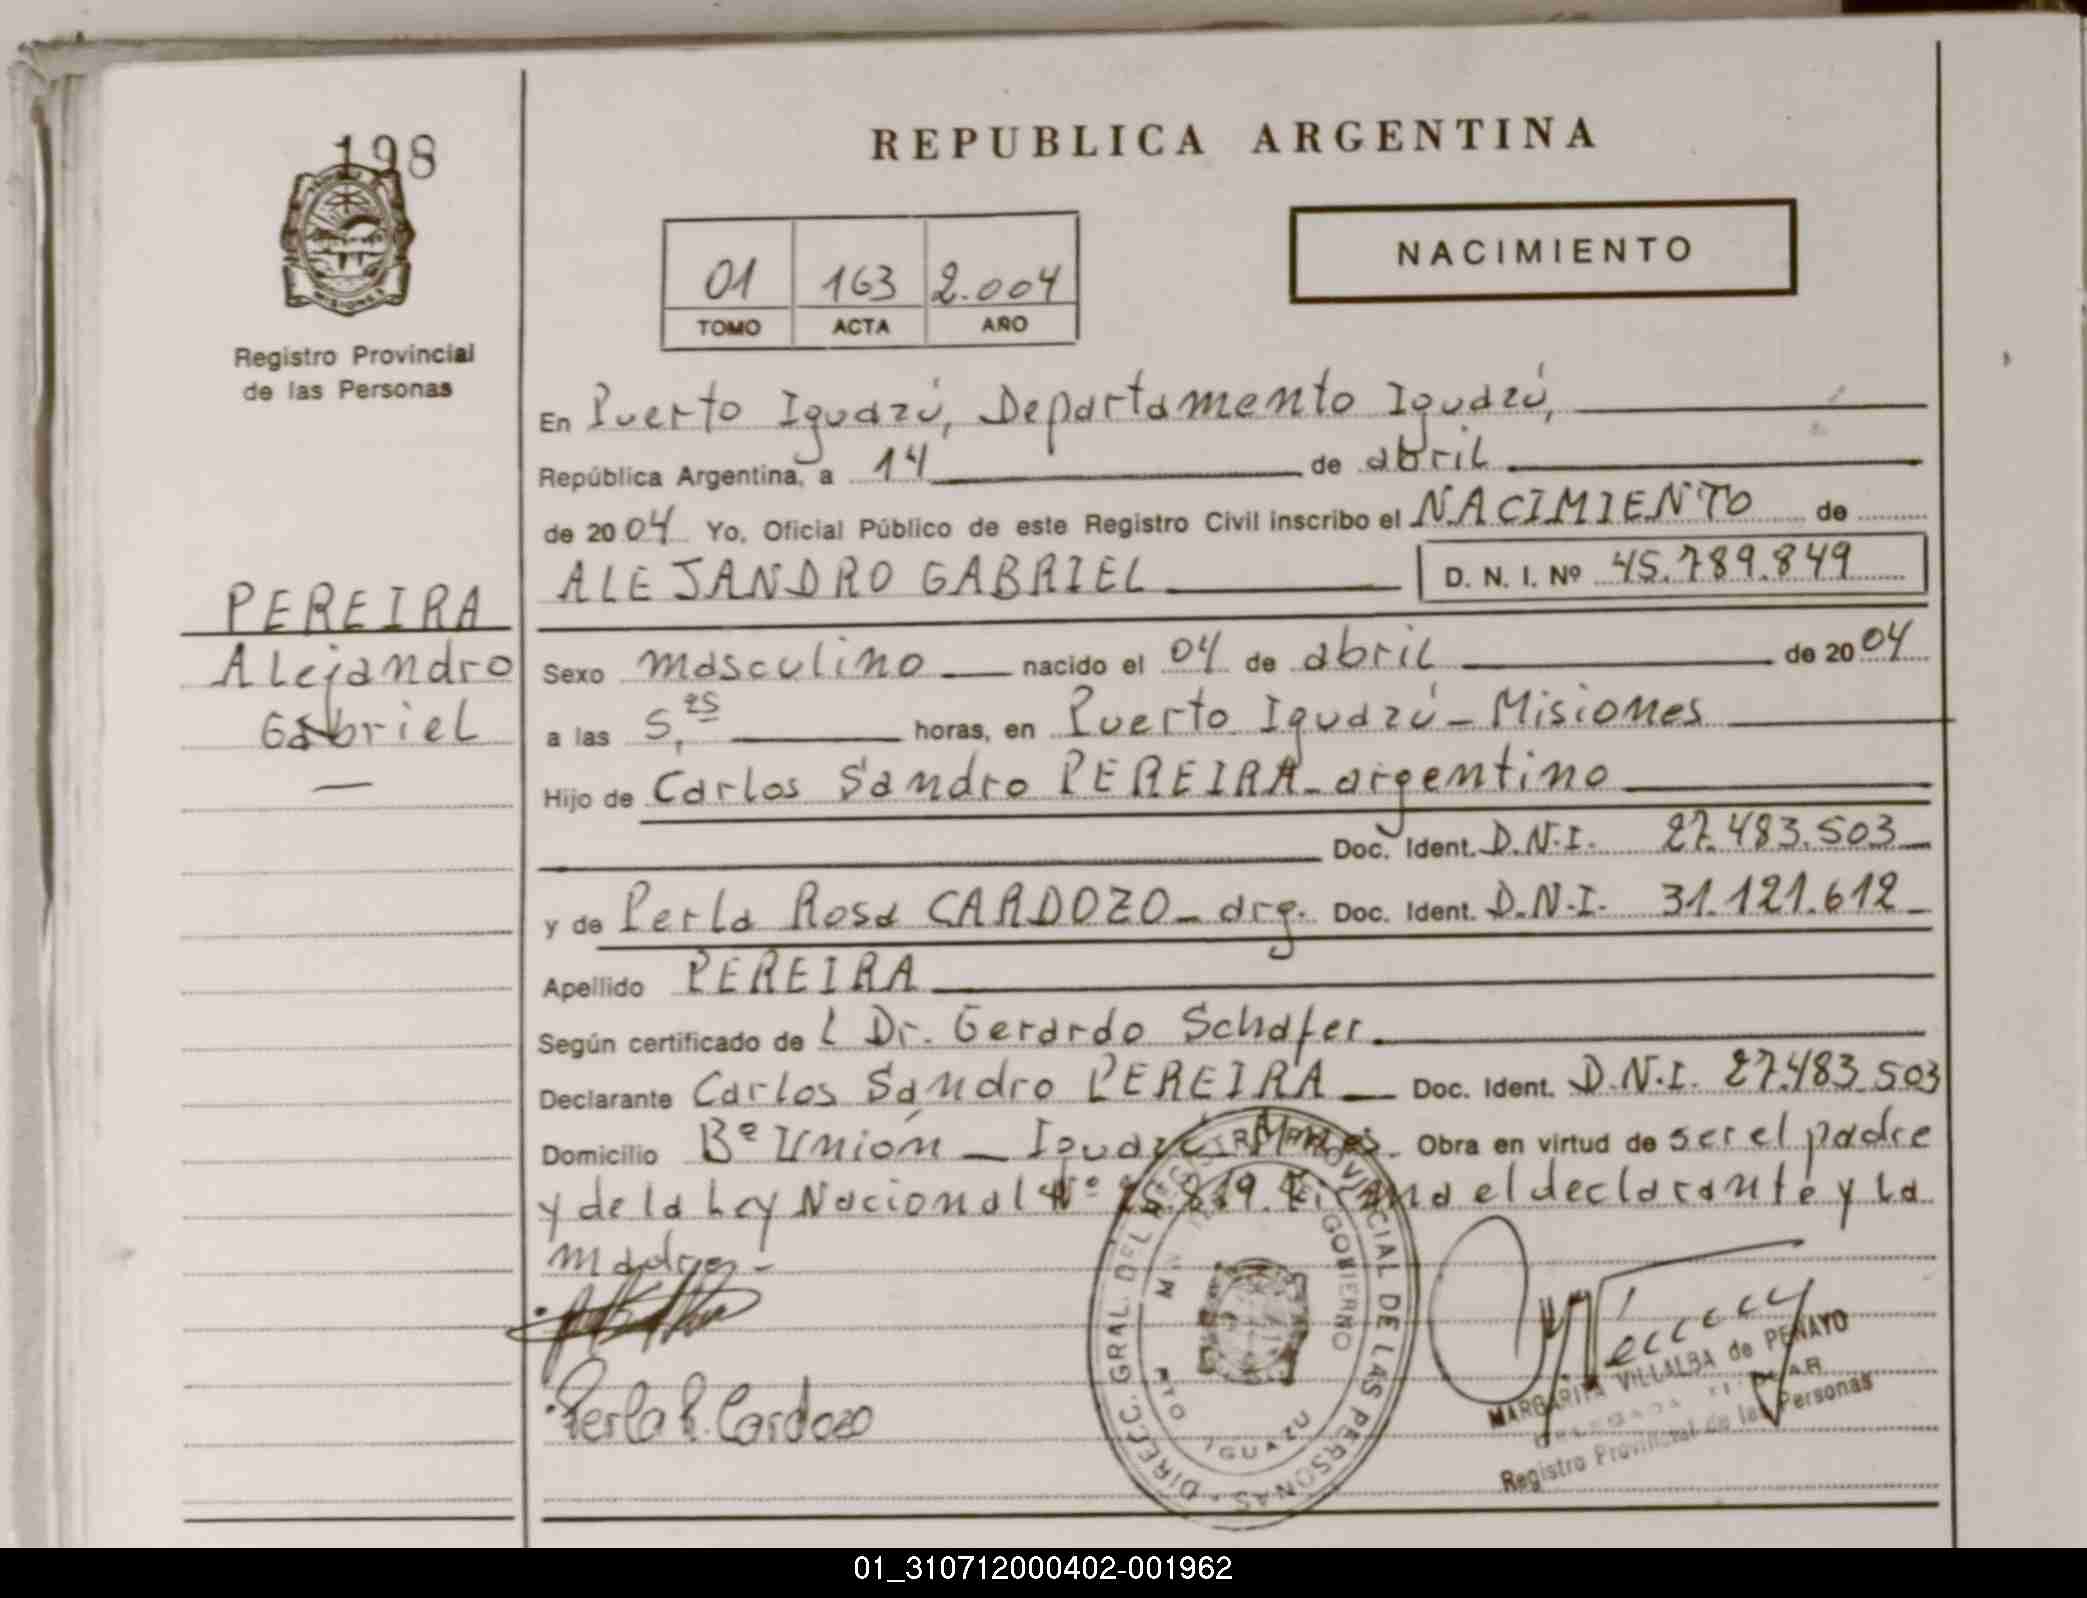 198
REPUBLICA ARGENTINA
NACIMIENTO
01 163 2.004
TOMO ACTA AÑO
MISIONES
Registro Provincial
de las Personas
En Puerto Iguazú, Departamento Iguazú,
República Argentina, a 14 de abril
de 2004 Yo, Oficial Público de este Registro Civil inscribo el NACIMIENTO de
ALEJANDRO GABRIEL D. N. I. Nº 45.789.849
PEREIRA
Alejandro
Gabriel
Sexo masculino nacido el 04 de abril de 2004
a las 5,25 horas, en Puerto Iguazú - Misiones
Hijo de Carlos Sandro PEREIRA - argentino
Doc. Ident. D.N.I. 27.483.503
y de Perla Rosa CARDOZO - arg. Doc. Ident. D.N.I. 31.121.612
Apellido PEREIRA
Según certificado de l Dr. Gerardo Schafer
Declarante Carlos Sandro PEREIRA Doc. Ident. D.N.I. 27.483.503
Domicilio Bº Unión - Iguazú - Mnes. Obra en virtud de ser el padre
y de la Ley Nacional Nº 25.819. Firma el declarante y la
madre -
Perla R. Cardozo
DIREC. GRAL. DEL REGISTRO PROVINCIAL DE LAS PERSONAS
GOBIERNO
PTO IGUAZU
MARGARITA VILLALBA de PENAYO
Registro Provincial de las Personas
01_310712000402-001962